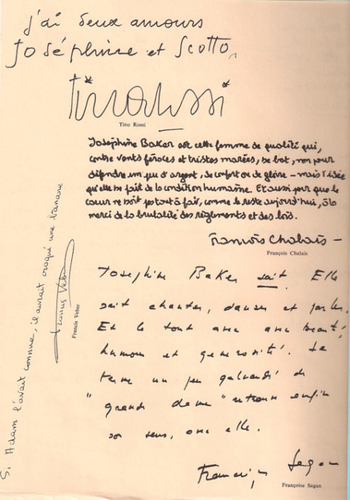 j'ai deux amours
Joséphine et Scotto,
Tino Rossi
Tino Rossi
Josephine Baker est cette femme de qualité qui,
contre vents féroces et tristes marées, se bat, non pour
défendre un peu d'argent, de confort ou de gloire - mais l'idée
qu'elle se fait de la condition humaine. Et aussi pour que le
coeur ne soit pas tout à fait, comme le reste aujourd'hui, à la
merci de la brutalité des règlements et des lois.
François Chalais -
François Chalais
Josephine Baker sait. Elle
sait chanter, danser et parler.
Et le tout avec une beauté,
humour et generosité. Le
terme un peu galvaudé de
"grande dame" retrouve enfin
son sens, avec elle.
Françoise Sagan
Françoise Sagan
Si Adam l'avait connue, il aurait croqué une banane
Francis Veber